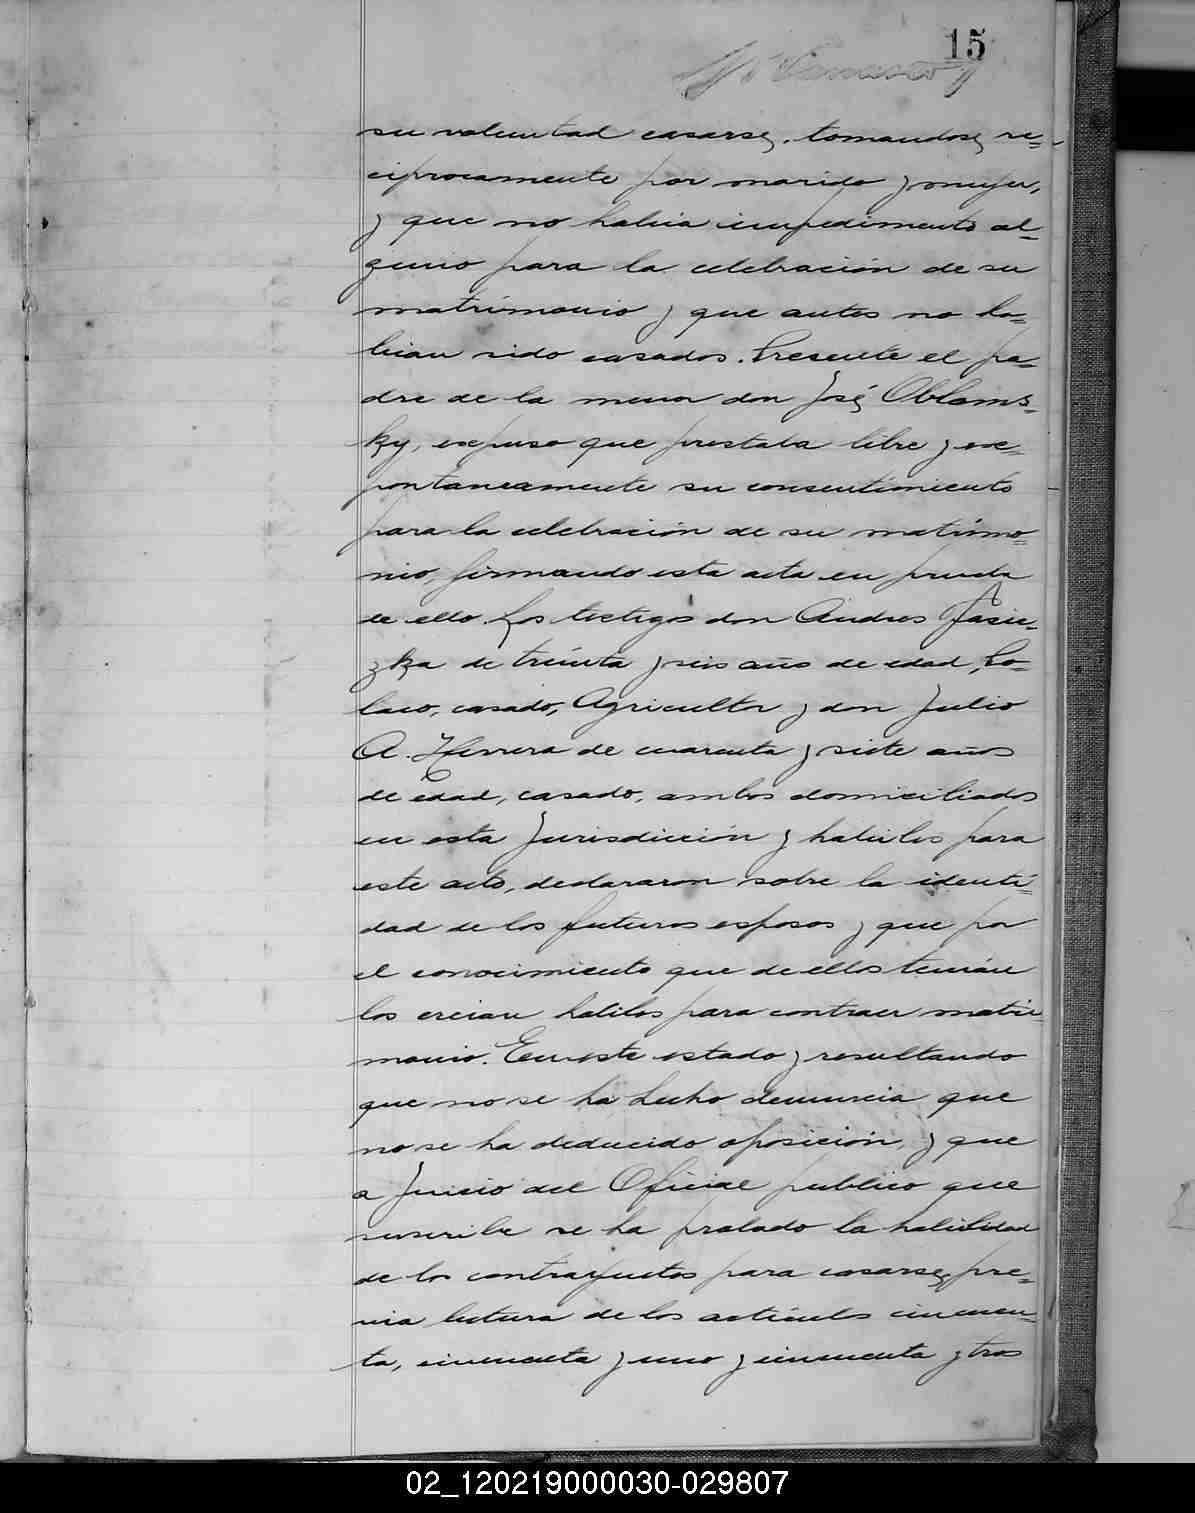 15
su voluntad casarse, tomandose re=
ciprocamente por marido y mujer,
y que no habia impedimento al=
guno para la celebración de su
matrimonio y que antes no ha=
bian sido casados. Presente el pa=
dre de la menor don José Oblams=
ky, expuso que prestaba libre y es=
pontaneamente su consentimiento
para la celebración de su matrimo=
nio, firmando esta acta en prueba
de ello. Los testigos don Andres Jasie=
zka de treinta y seis años de edad, Po=
laco, casado, Agricultor y don Julio
A. Herrera de cuarenta y siete años
de edad, casado, ambos domiciliados
en esta Jurisdicción y habiles para
este acto, declararon sobre la identi=
dad de los futuros esposos y que por
el conocimiento que de ellos tenian
los creian habiles para contraer matri=
monio. En este estado y resultando
que no se ha hecho denuncia que
no se ha deducido oposición, y que
a Juicio del Oficial publico que
suscribe se ha probado la habilidad
de los contrayentes para casarse, pre=
via lectura de los articulos cincuen=
ta, cincuenta y uno y cincuenta y tres
02_120219000030-029807